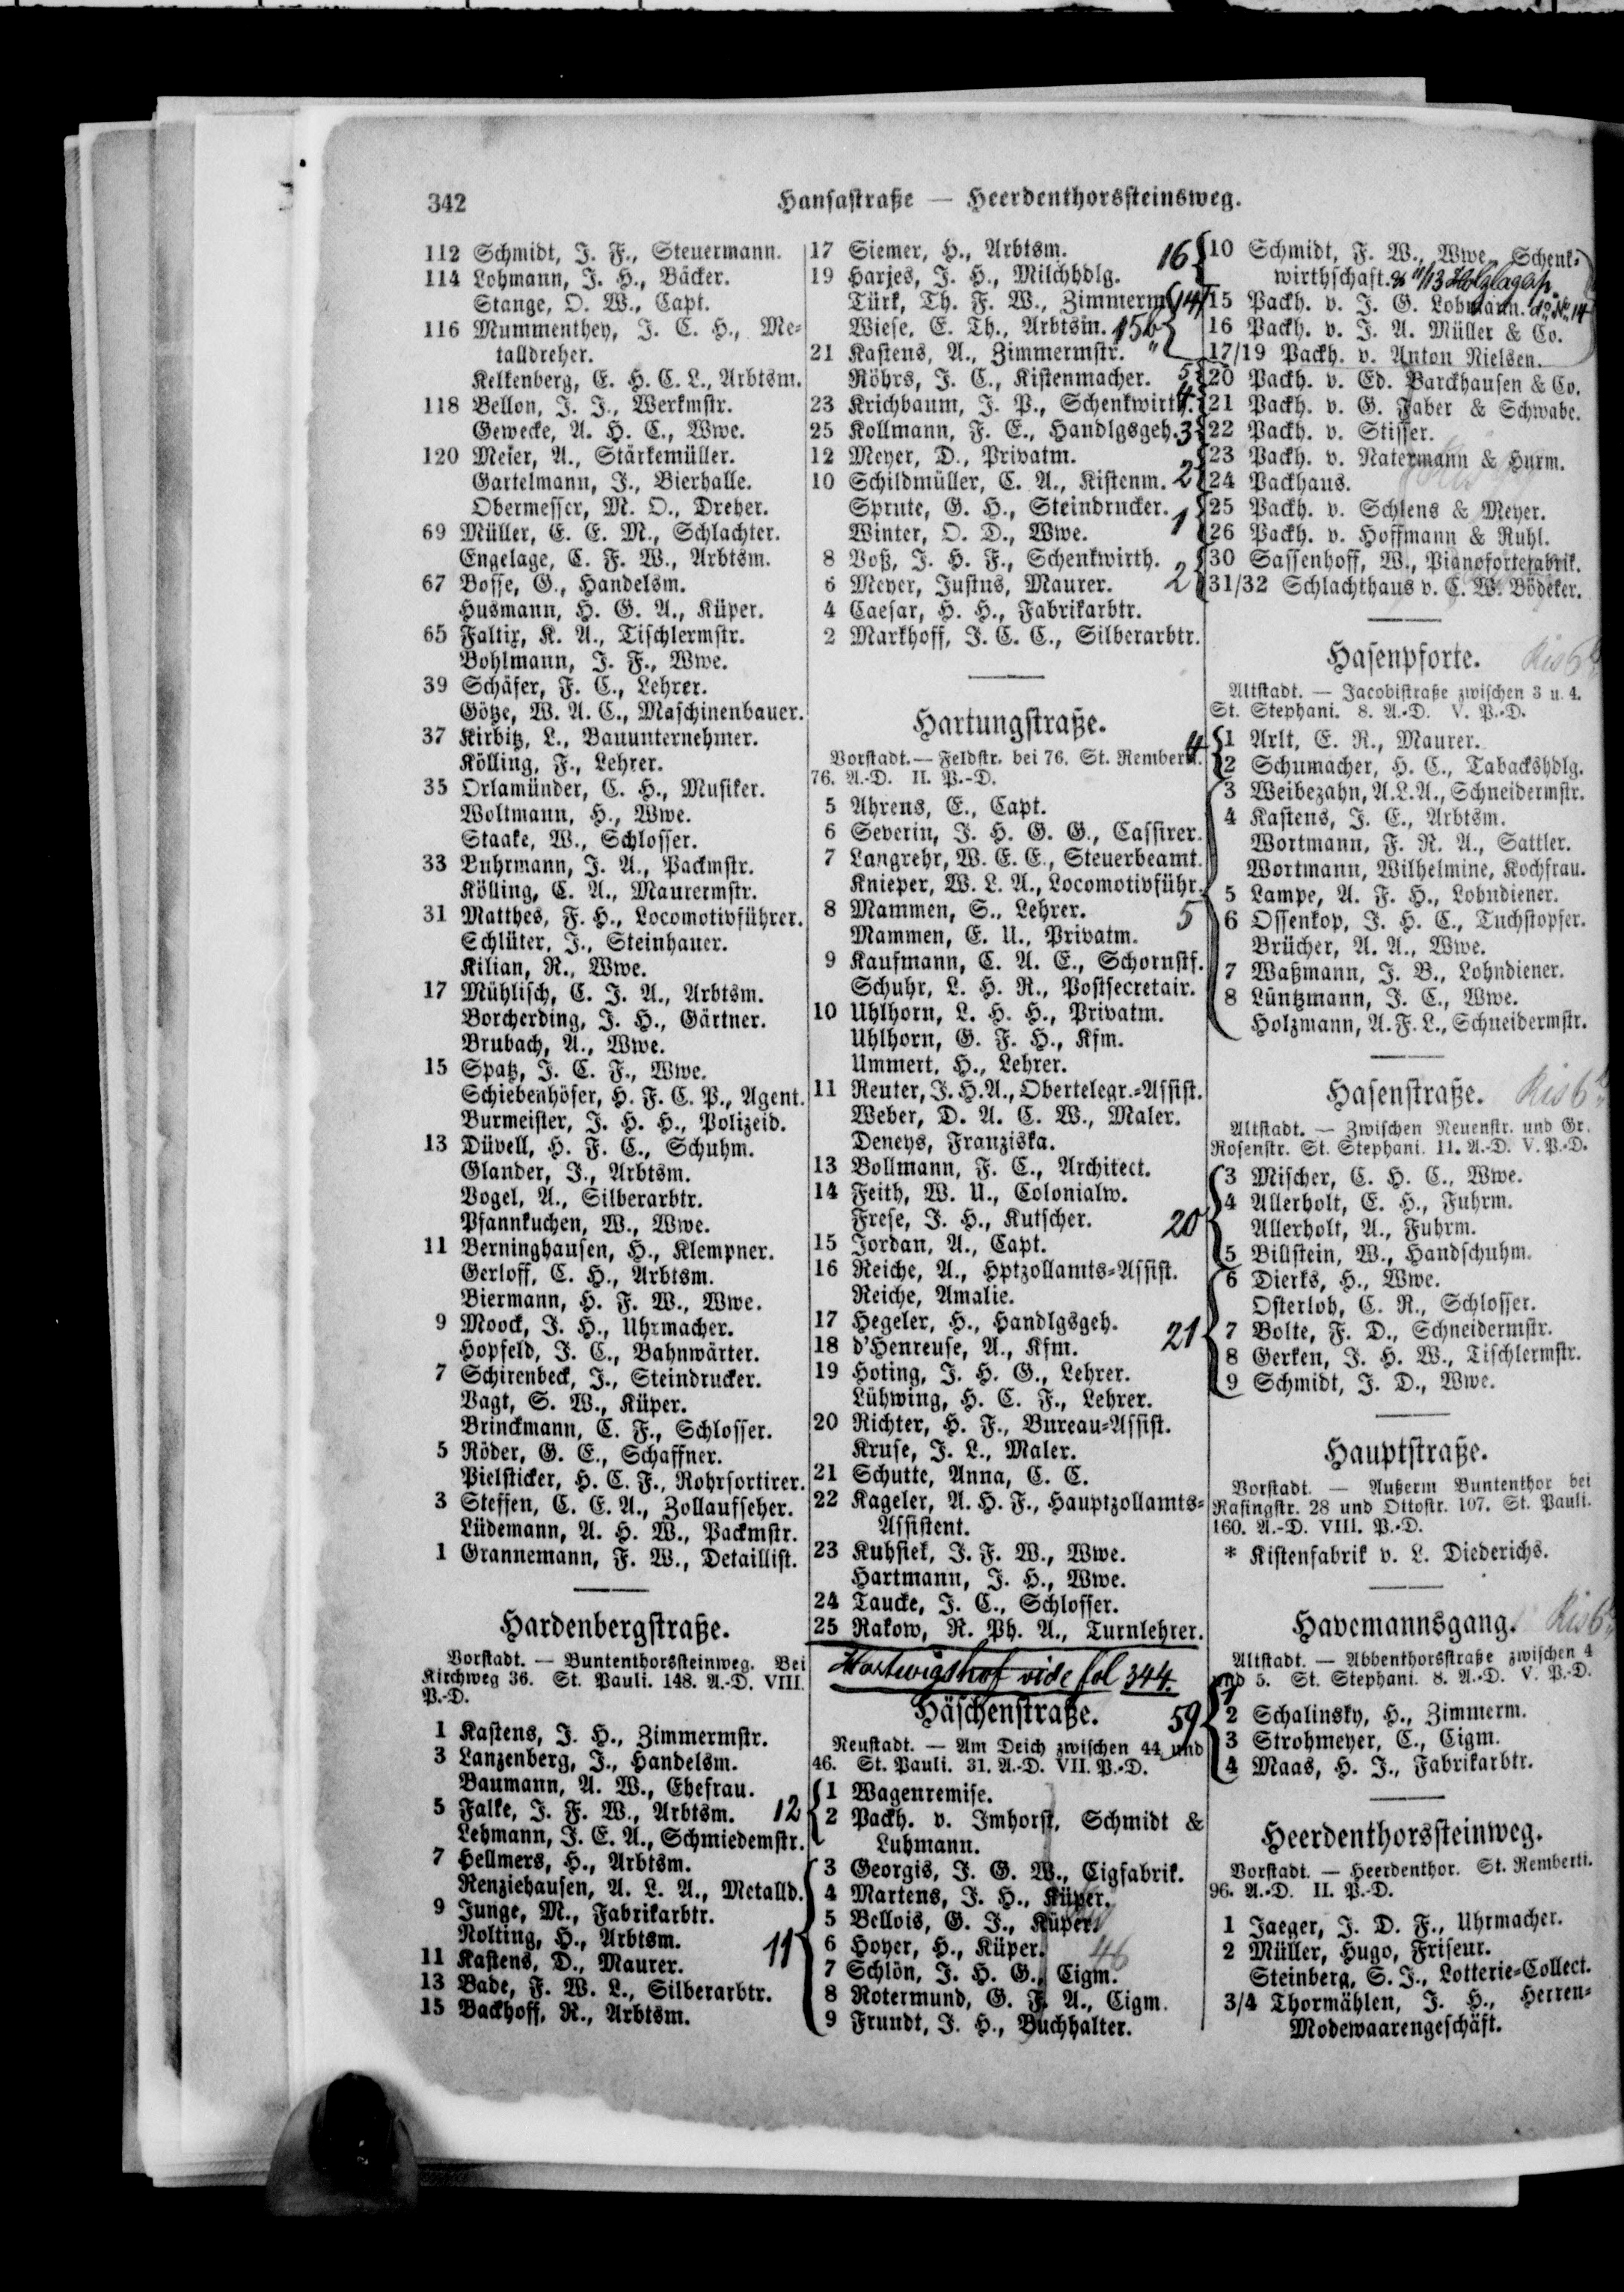 342
Hansastraße — Heerdenthorssteinsweg.
112 Schmidt, J. F., Steuermann.
114 Lohmann, J. H., Bäcker.
Stange, O. W., Capt.
116 Mummenthey, J. C. H., Me-
talldreher.
Kelkenberg, E. H. C. L., Arbtsm.
118 Bellon, J. J., Werkmstr.
Gewecke, A. H. C., Wwe.
120 Meier, A., Stärkemüller.
Gartelmann, J., Bierhalle.
Obermesser, M. O., Dreher.
69 Müller, E. E. M., Schlachter.
Engelage, C. F. W., Arbtsm.
67 Bosse, G., Handelsm.
Husmann, H. G. A., Küper.
65 Faltix, K. A., Tischlermstr.
Bohlmann, J. F., Wwe.
39 Schäfer, F. C., Lehrer.
Götze, W. A. C., Maschinenbauer.
37 Kirbitz, L., Bauunternehmer.
Kölling, F., Lehrer.
35 Orlamünder, C. H., Musiker.
Woltmann, H., Wwe.
Staake, W., Schlosser.
33 Luhrmann, J. A., Packmstr.
Kölling, C. A., Maurermstr.
31 Matthes, F. H., Locomotivführer.
Schlüter, J., Steinhauer.
Kilian, R., Wwe.
17 Mühlisch, C. J. A., Arbtsm.
Borcherding, J. H., Gärtner.
Brubach, A., Wwe.
15 Spatz, J. C. F., Wwe.
Schiebenhöfer, H. F. C. P., Agent.
Burmeister, J. H. H., Polizeid.
13 Düvell, H. F. C., Schuhm.
Glander, J., Arbtsm.
Vogel, A., Silberarbtr.
Pfannkuchen, W., Wwe.
11 Berninghausen, H., Klempner.
Gerloff, C. H., Arbtsm.
Biermann, H. F. W., Wwe.
9 Moock, J. H., Uhrmacher.
Hopfeld, J. C., Bahnwärter.
7 Schirenbeck, J., Steindrucker.
Vagt, S. W., Küper.
Brinckmann, C. F., Schlosser.
5 Röder, G. E., Schaffner.
Pielsticker, H. C. F., Rohrsortirer.
3 Steffen, C. E. A., Zollaufseher.
Lüdemann, A. H. W., Packmstr.
1 Grannemann, F. W., Detaillist.
Hardenbergstraße.
Vorstadt. — Buntenthorssteinweg. Bei
Kirchweg 36. St. Pauli. 148. A.-D. VIII.
P.-D.
1 Kastens, J. H., Zimmermstr.
3 Lanzenberg, J., Handelsm.
Baumann, A. W., Ehefrau.
5 Falke, J. F. W., Arbtsm.
Lehmann, J. E. A., Schmiedemstr.
7 Hellmers, H., Arbtsm.
Renziehausen, A. L. A., Metalld.
9 Junge, M., Fabrikarbtr.
Nolting, H., Arbtsm.
11 Kastens, D., Maurer.
13 Bade, F. W. L., Silberarbtr.
15 Backhoff, R., Arbtsm.
17 Siemer, H., Arbtsm.
19 Harjes, J. H., Milchhdlg.
Türk, Th. F. W., Zimmerm.
Wiese, E. Th., Arbtsm.
21 Kastens, A., Zimmermstr.
Röhrs, J. C., Kistenmacher.
23 Krichbaum, J. P., Schenkwirth.
25 Kollmann, F. E., Handlgsgeh.
12 Meyer, D., Privatm.
10 Schildmüller, C. A., Kistenm.
Sprute, G. H., Steindrucker.
Winter, O. D., Wwe.
8 Voß, J. H. F., Schenkwirth.
6 Meyer, Justus, Maurer.
4 Caesar, H. H., Fabrikarbtr.
2 Markhoff, J. C. C., Silberarbtr.
Hartungstraße.
Vorstadt. — Feldstr. bei 76. St. Remberti.
76. A.-D. II. P.-D.
5 Ahrens, E., Capt.
6 Severin, J. H. G. G., Cassirer.
7 Langrehr, W. E. E., Steuerbeamt.
Knieper, W. L. A., Locomotivführ.
8 Mammen, S., Lehrer.
Mammen, E. U., Privatm.
9 Kaufmann, C. A. E., Schornstf.
Schuhr, L. H. R., Postsecretair.
10 Uhlhorn, L. H. H., Privatm.
Uhlhorn, G. F. H., Kfm.
Ummert, H., Lehrer.
11 Reuter, J. H. A., Obertelegr.-Assist.
Weber, D. A. C. W., Maler.
Deneys, Franziska.
13 Bollmann, F. C., Architect.
14 Feith, W. U., Colonialw.
Frese, J. H., Kutscher.
15 Jordan, A., Capt.
16 Reiche, A., Hptzollamts-Assist.
Reiche, Amalie.
17 Hegeler, H., Handlgsgeh.
18 d'Henreuse, A., Kfm.
19 Hoting, J. H. G., Lehrer.
Lühwing, H. C. F., Lehrer.
20 Richter, H. F., Bureau-Assist.
Kruse, J. L., Maler.
21 Schutte, Anna, C. C.
22 Kageler, A. H. F., Hauptzollamts-
Assistent.
23 Kuhsiek, J. F. W., Wwe.
Hartmann, J. H., Wwe.
24 Taucke, J. C., Schlosser.
25 Rakow, R. Ph. A., Turnlehrer.
Hartwigshof vide fol 344.
Häschenstraße.
Neustadt. — Am Deich zwischen 44 und
46. St. Pauli. 31. A.-D. VII. P.-D.
12
1 Wagenremise.
2 Packh. v. Imhorst, Schmidt &
Luhmann.
11
3 Georgis, J. G. W., Cigfabrik.
4 Martens, J. H., Küper.
5 Bellois, G. J., Küper.
6 Hoyer, H., Küper. 46
7 Schlön, J. H. G., Cigm.
8 Rotermund, G. F. A., Cigm.
9 Frundt, J. H., Buchhalter.
16
10 Schmidt, F. W., Wwe., Schenk-
wirthschaft.
14
15 Packh. v. J. G. Lohmann.
15b
16 Packh. v. J. A. Müller & Co.
17/19 Packh. v. Anton Nielsen.
5
20 Packh. v. Ed. Barckhausen & Co.
4
21 Packh. v. G. Faber & Schwabe.
3
22 Packh. v. Stisser.
2
23 Packh. v. Natermann & Hurm.
24 Packhaus.
1
25 Packh. v. Schlens & Meyer.
26 Packh. v. Hoffmann & Ruhl.
2
30 Sassenhoff, W., Pianofortefabrik.
31/32 Schlachthaus v. C. W. Bödeker.
Hasenpforte.
Altstadt. — Jacobistraße zwischen 3 u. 4.
St. Stephani. 8. A.-D. V. P.-D.
4
1 Arlt, E. R., Maurer.
2 Schumacher, H. C., Tabackshdlg.
5
3 Weibezahn, A. L. A., Schneidermstr.
4 Kastens, J. E., Arbtsm.
Wortmann, F. R. A., Sattler.
Wortmann, Wilhelmine, Kochfrau.
5 Lampe, A. F. H., Lohndiener.
6 Ossenkop, J. H. C., Tuchstopfer.
Brücher, A. A., Wwe.
7 Waßmann, J. B., Lohndiener.
8 Lüntzmann, J. C., Wwe.
Holzmann, A. F. L., Schneidermstr.
Hasenstraße.
Altstadt. — Zwischen Neuenstr. und Gr.
Rosenstr. St. Stephani. 11. A.-D. V. P.-D.
20
3 Mischer, C. H. C., Wwe.
4 Allerholt, E. H., Fuhrm.
Allerholt, A., Fuhrm.
5 Billstein, W., Handschuhm.
21
6 Dierks, H., Wwe.
Osterloh, C. R., Schlosser.
7 Bolte, F. D., Schneidermstr.
8 Gerken, J. H. W., Tischlermstr.
9 Schmidt, J. D., Wwe.
Hauptstraße.
Vorstadt. — Außerm Buntenthor bei
Rasingstr. 28 und Ottostr. 107. St. Pauli.
160. A.-D. VIII. P.-D.
* Kistenfabrik v. L. Diederichs.
Havemannsgang.
Altstadt. — Abbenthorsstraße zwischen 4
und 5. St. Stephani. 8. A.-D. V. P.-D.
59
1
2 Schalinsky, H., Zimmerm.
3 Strohmeyer, C., Cigm.
4 Maas, H. J., Fabrikarbtr.
Heerdenthorssteinweg.
Vorstadt. — Heerdenthor. St. Remberti.
96. A.-D. II. P.-D.
1 Jaeger, J. D. F., Uhrmacher.
2 Müller, Hugo, Friseur.
Steinberg, S. J., Lotterie-Collect.
3/4 Thormählen, J. H., Herren-
Modewaarengeschäft.